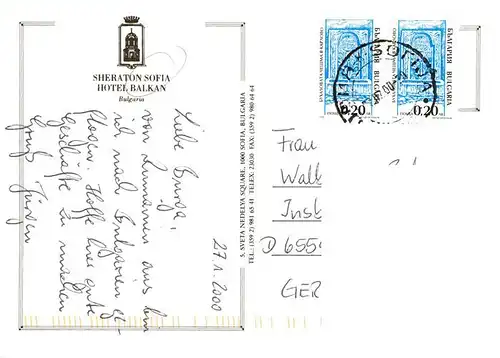 SHERATON SOFIA
HOTEL BALKAN
Bulgaria
27.1.2000
Liebe
von Rumänien aus bin
ich nach Bulgarien ge-
flogen. Hoffe hier gute
Geschäfte zu machen
Gruß Jürgen
5, SVETA NEDELYA SQUARE, 1000 SOFIA, BULGARIA
TEL.: (359 2) 981 65 41 TELEX: 23030 FAX: (359 2) 980 64 64
БЪЛГАРИЯ BULGARIA
0.20
БЪЛГАРИЯ BULGARIA
0.20
Frau
Wall
Inst
D 655
GER